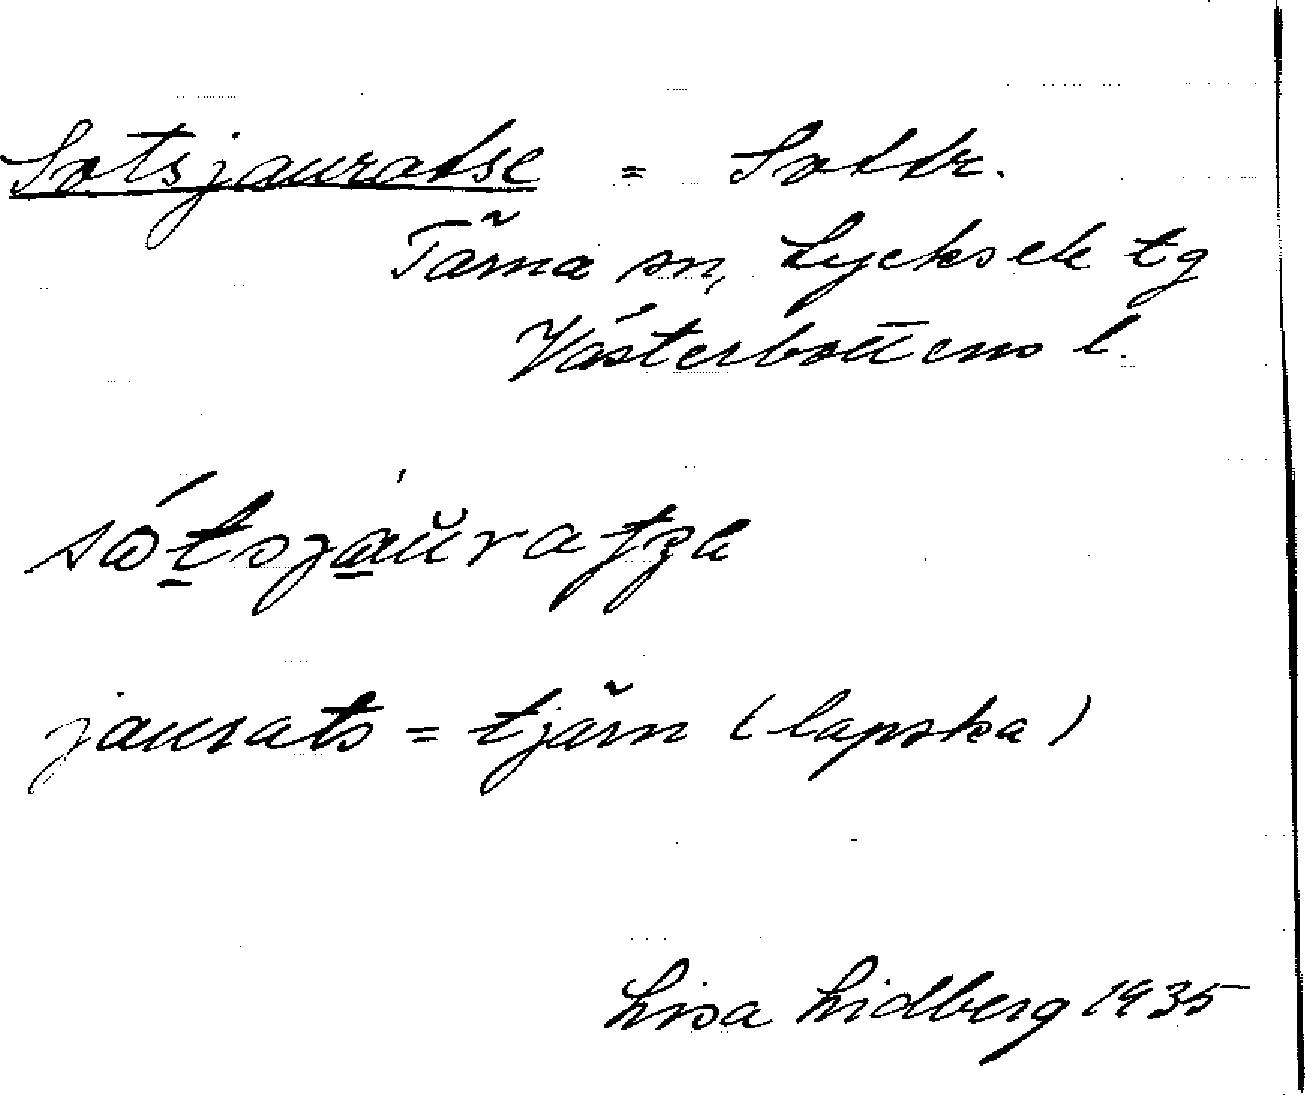 Sotsjauratse = Sottr.
Tärna sn, Lycksele tg
Västerbottens l.
jaurats = tjärn (lapska)
Lisa Lidberg 1935